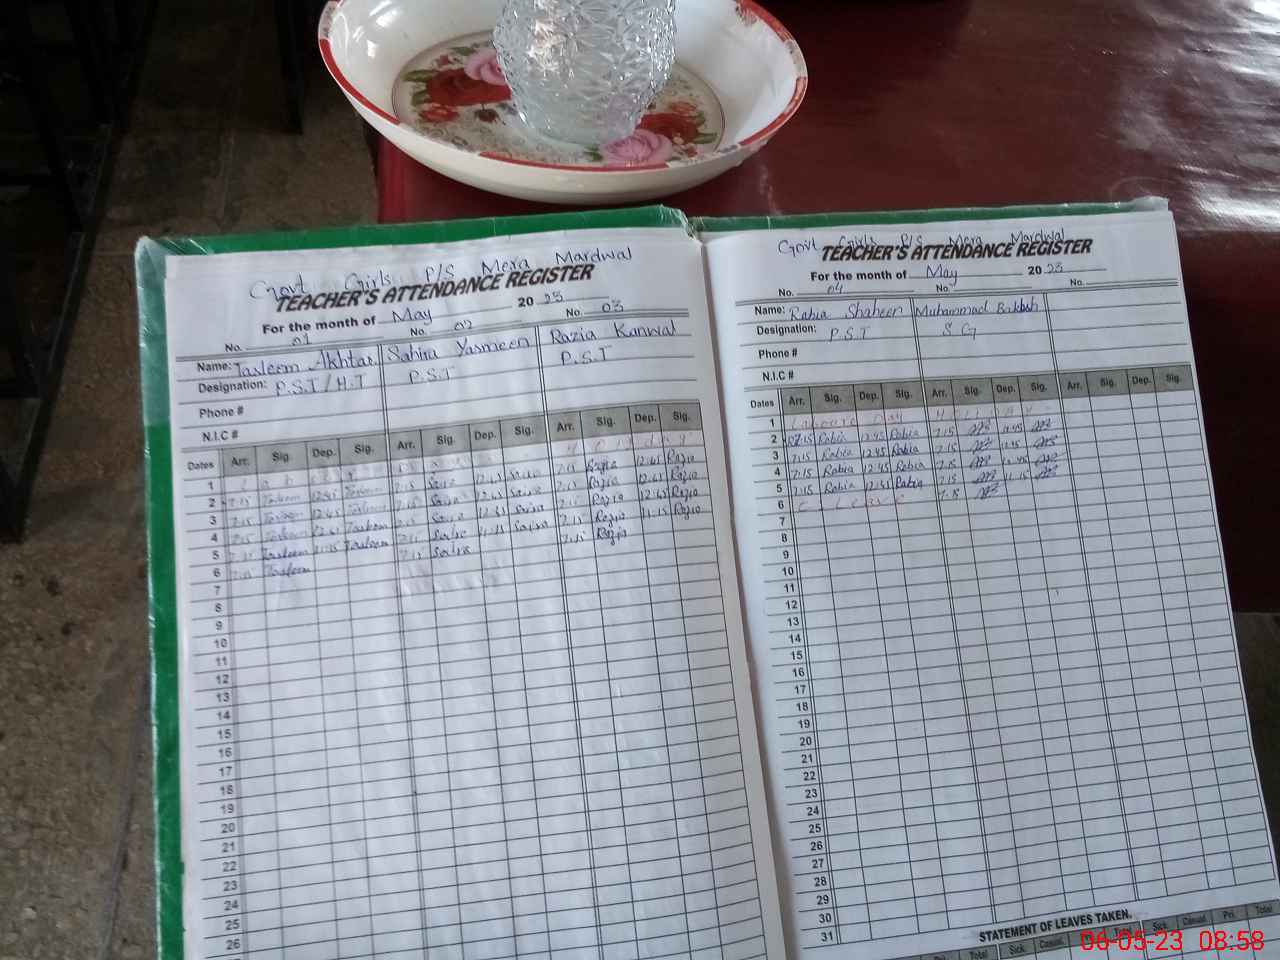 Govt Girls P/S Mera Mardwal
TEACHER'S ATTENDANCE REGISTER
For the month of May 2023
No. 01 No. 02 No. 03
Name: Tasleem Akhtar Sahira Yasmeen Razia Kanwal
Designation: P.S.T / H.T P.S.T P.S.T
Phone #
N.I.C #
Dates Arr. Sig. Dep. Sig. Arr. Sig. Dep. Sig. Arr. Sig. Dep. Sig.
1
2 7:15 Tasleem 12:45 Tasleem 7:15 12:45 7:15 Razia 12:45 Razia
3 7:15 Tasleem 12:45 Tasleem 7:15 12:45 7:15 Razia 12:45 Razia
4 7:15 Tasleem 12:45 Tasleem 7:15 12:45 7:15 Razia 12:45 Razia
5 7:15 Tasleem 11:15 Tasleem 7:15 11:15 7:15 Razia 11:15 Razia
6 7:15 Tasleem 7:15 7:15 Razia
7
8
9
10
11
12
13
14
15
16
17
18
19
20
21
22
23
24
25
26
Govt Girls P/S Mera Mardwal
TEACHER'S ATTENDANCE REGISTER
For the month of May 2023
No. 04 No. No.
Name: Rabia Shaheen Muhammad Bakhsh
Designation: P.S.T S.G
Phone #
N.I.C #
Dates Arr. Sig. Dep. Sig. Arr. Sig. Dep. Sig. Arr. Sig. Dep. Sig.
1 Labour Day Holiday
2 7:15 Rabia 12:45 Rabia 7:15 11:45
3 7:15 Rabia 12:45 Rabia 7:15 11:45
4 7:15 Rabia 12:45 Rabia 7:15 11:45
5 7:15 Rabia Rabia 7:15 11:15
6 C. Leave 7:15
7
8
9
10
11
12
13
14
15
16
17
18
19
20
21
22
23
24
25
26
27
28
29
30
31
STATEMENT OF LEAVES TAKEN.
Pri. Total Sick. Casual. Pri. Total Sick. Casual. Pri. Total
06-05-23 08:58